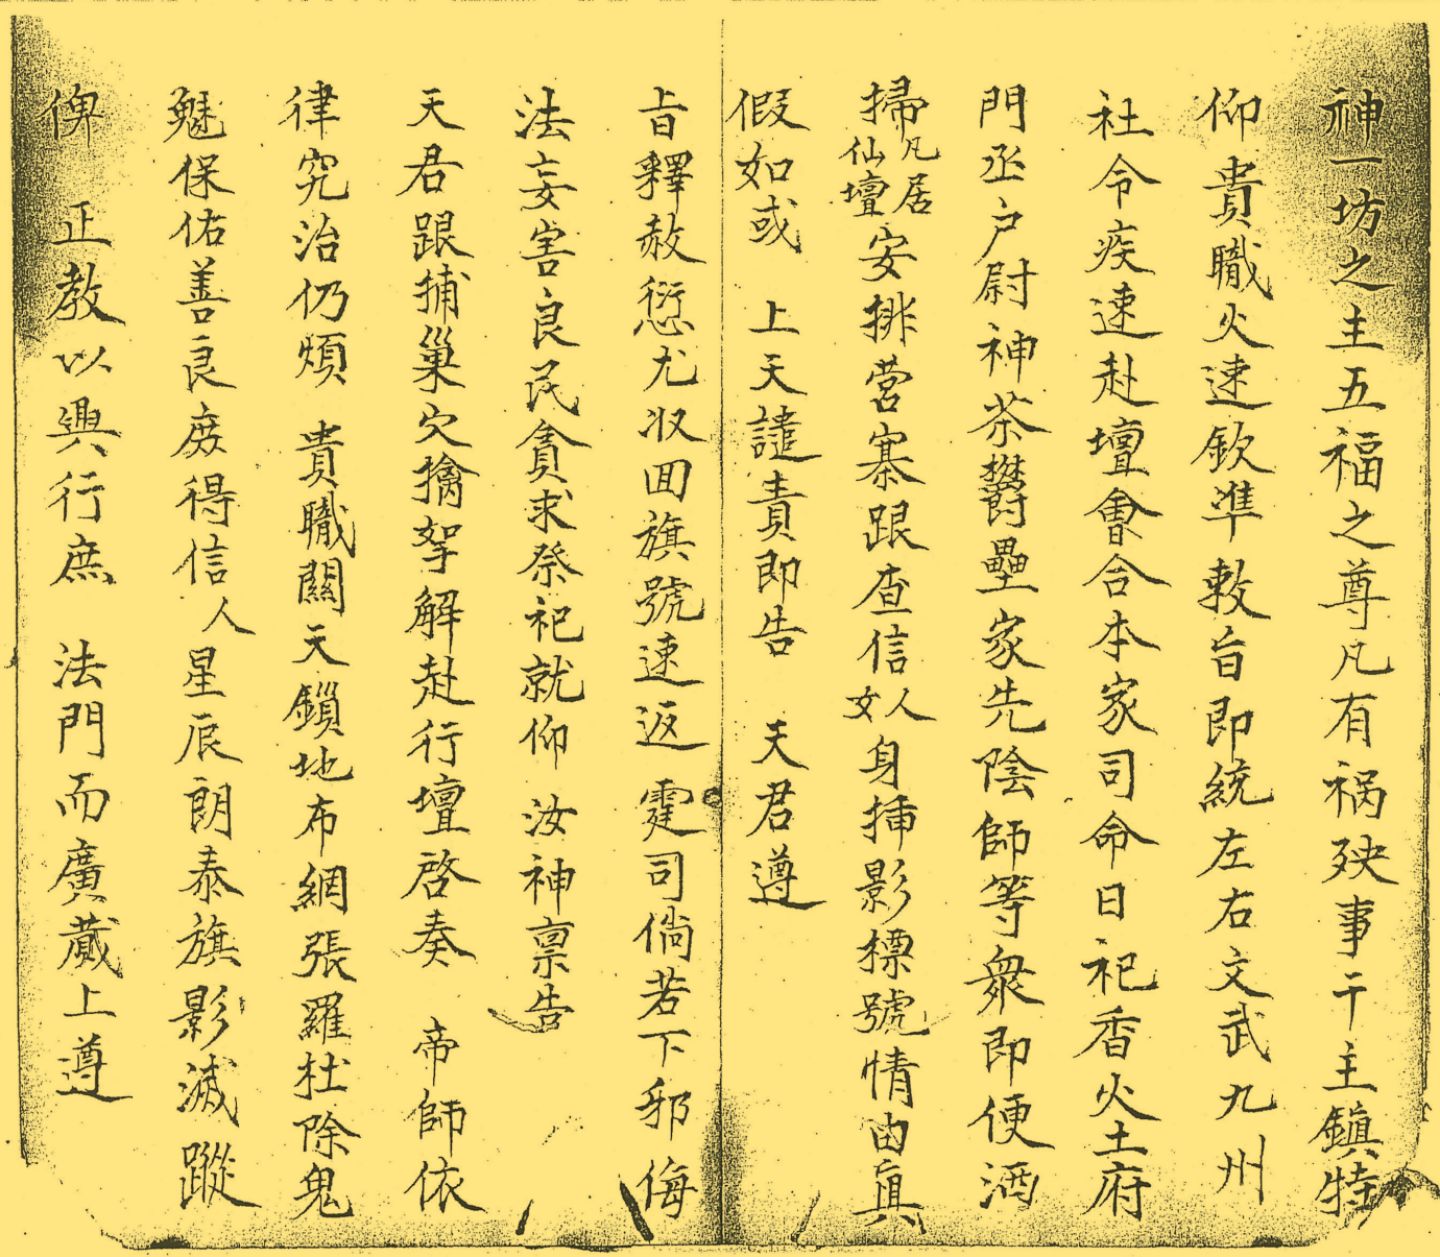 神一坊之主五福之尊凡有禍殃事干主鎮特
仰貴職火速欽準敕旨即統左右文武九州
社令疾速赴壇會合本家司命日祀香火土府
門丞户尉神荼鬱壘家先陰師等衆即便洒
掃凡居仙壇安排營寨跟查信人女身揷影標號情由真
假如或　上天譴責即告　天君遵
旨釋赦愆尤収回旗號速返霆司倘若下邪侮
法妄害良民貪求祭祀就仰　汝神禀告
天君跟捕巢穴擒拏解赴行壇啓奏　帝師依
律究治仍煩　貴職關天鎖地布網張羅杜除鬼
魅保佑善良庶得信人星辰朗泰旗影滅蹤
俾　正教以興行庶　法門而廣蕆上遵